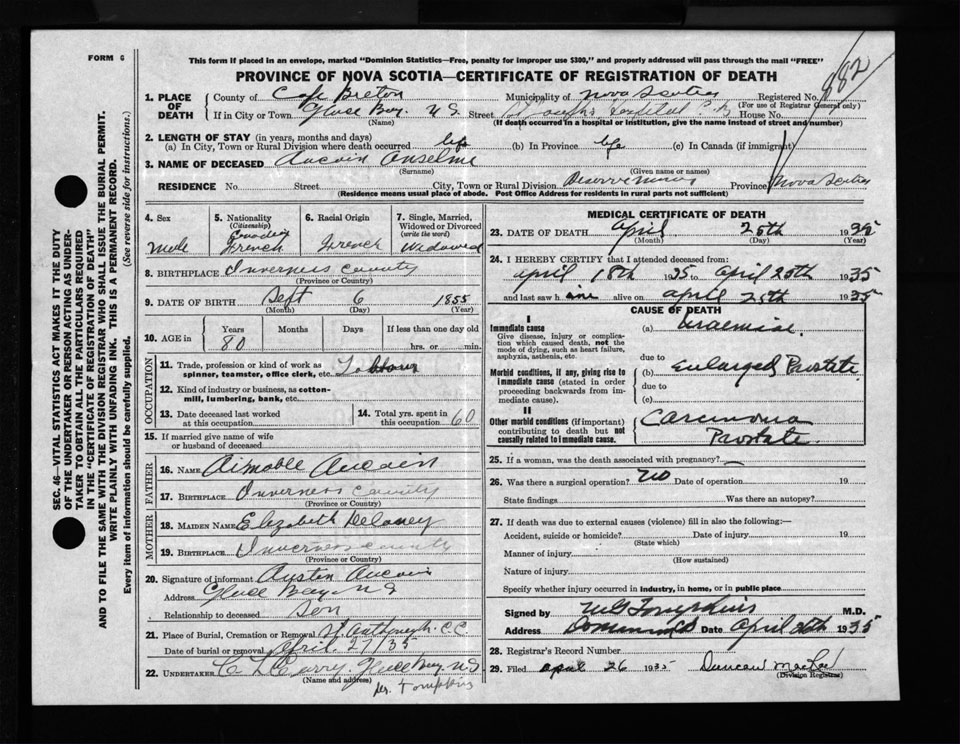 FORM 6
This form if placed in an envelope, marked "Dominion Statistics—Free, penalty for improper use $300," and properly addressed will pass through the mail "FREE"
PROVINCE OF NOVA SCOTIA—CERTIFICATE OF REGISTRATION OF DEATH
882
1. PLACE OF DEATH { County of Cape Breton Municipality of Nova Scotia Registered No.
(For use of Registrar General only)
If in City or Town Glace Bay. N.S. Street St Josephs Hospital House No.
(Name) (If death occurred in a hospital or institution, give the name instead of street and number)
2. LENGTH OF STAY (in years, months and days)
(a) In City, Town or Rural Division where death occurred life (b) In Province life (c) In Canada (if immigrant)
3. NAME OF DECEASED Aucoin Anselme
(Surname) (Given name or names)
RESIDENCE No. Street City, Town or Rural Division Reserve Mines Province Nova Scotia
(Residence means usual place of abode. Post Office Address for residents in rural parts not sufficient)
4. Sex 5. Nationality (Citizenship) 6. Racial Origin 7. Single, Married, Widowed or Divorced (write the word)
Male Canadian French French Widowed
8. BIRTHPLACE Inverness County
(Province or Country)
9. DATE OF BIRTH Sept 6 1855
(Month) (Day) (Year)
10. AGE in Years Months Days If less than one day old
80 hrs. or min.
OCCUPATION
11. Trade, profession or kind of work as spinner, teamster, office clerk, etc.
12. Kind of industry or business, as cotton-mill, lumbering, bank, etc.
13. Date deceased last worked at this occupation 14. Total yrs. spent in this occupation 60
15. If married give name of wife or husband of deceased
FATHER
16. NAME Aimable Aucoin
17. BIRTHPLACE Inverness County
(Province or Country)
MOTHER
18. MAIDEN NAME Elizabeth Delaney
19. BIRTHPLACE Inverness County
(Province or Country)
20. Signature of informant Austen Aucoin
Address Glace Bay N S
Relationship to deceased Son
21. Place of Burial, Cremation or Removal St Anthony's C.C.
Date of burial or removal April 27/35
22. UNDERTAKER C L Curry, Glace Bay, N.S
(Name and address)
Dr. Tompkins
MEDICAL CERTIFICATE OF DEATH
23. DATE OF DEATH April 25th 1935
(Month) (Day) (Year)
24. I HEREBY CERTIFY that I attended deceased from:
April 18th 1935 to April 25th 1935
and last saw him alive on April 25th 1935
CAUSE OF DEATH
I
Immediate cause (a) Uraemia.
Give disease, injury or complication which caused death, not the mode of dying, such as heart failure, asphyxia, asthenia, etc.
due to
Morbid conditions, if any, giving rise to immediate cause (stated in order proceeding backwards from immediate cause). (b) Enlarged Prostate
due to
(c)
II
Other morbid conditions (if important) contributing to death but not causally related to immediate cause. Carcinoma Prostate.
25. If a woman, was the death associated with pregnancy?
26. Was there a surgical operation? No Date of operation 19
State findings Was there an autopsy?
27. If death was due to external causes (violence) fill in also the following:—
Accident, suicide or homicide? Date of injury 19
(State which)
Manner of injury
(How sustained)
Nature of injury
Specify whether injury occurred in industry, in home, or in public place
Signed by M G Tompkins M.D.
Address Dominion Date April 26th 1935
28. Registrar's Record Number
29. Filed April 26 1935 Duncan MacRae
(Division Registrar)
SEC. 46—VITAL STATISTICS ACT MAKES IT THE DUTY
OF THE UNDERTAKER OR PERSON ACTING AS UNDER-
TAKER TO OBTAIN ALL THE PARTICULARS REQUIRED
IN THE "CERTIFICATE OF REGISTRATION OF DEATH"
AND TO FILE THE SAME WITH THE DIVISION REGISTRAR WHO SHALL ISSUE THE BURIAL PERMIT.
WRITE PLAINLY WITH UNFADING INK. THIS IS A PERMANENT RECORD.
Every item of information should be carefully supplied. (See reverse side for instructions.)